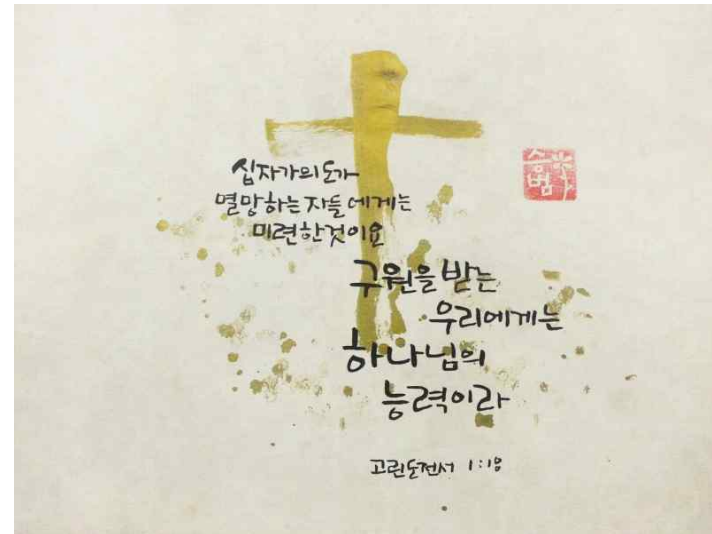 십자가의 도가
멸망하는 자들에게는
미련한 것이요
구원을 받는
우리에게는
하나님의
능력이라
고린도전서 1:18
승범